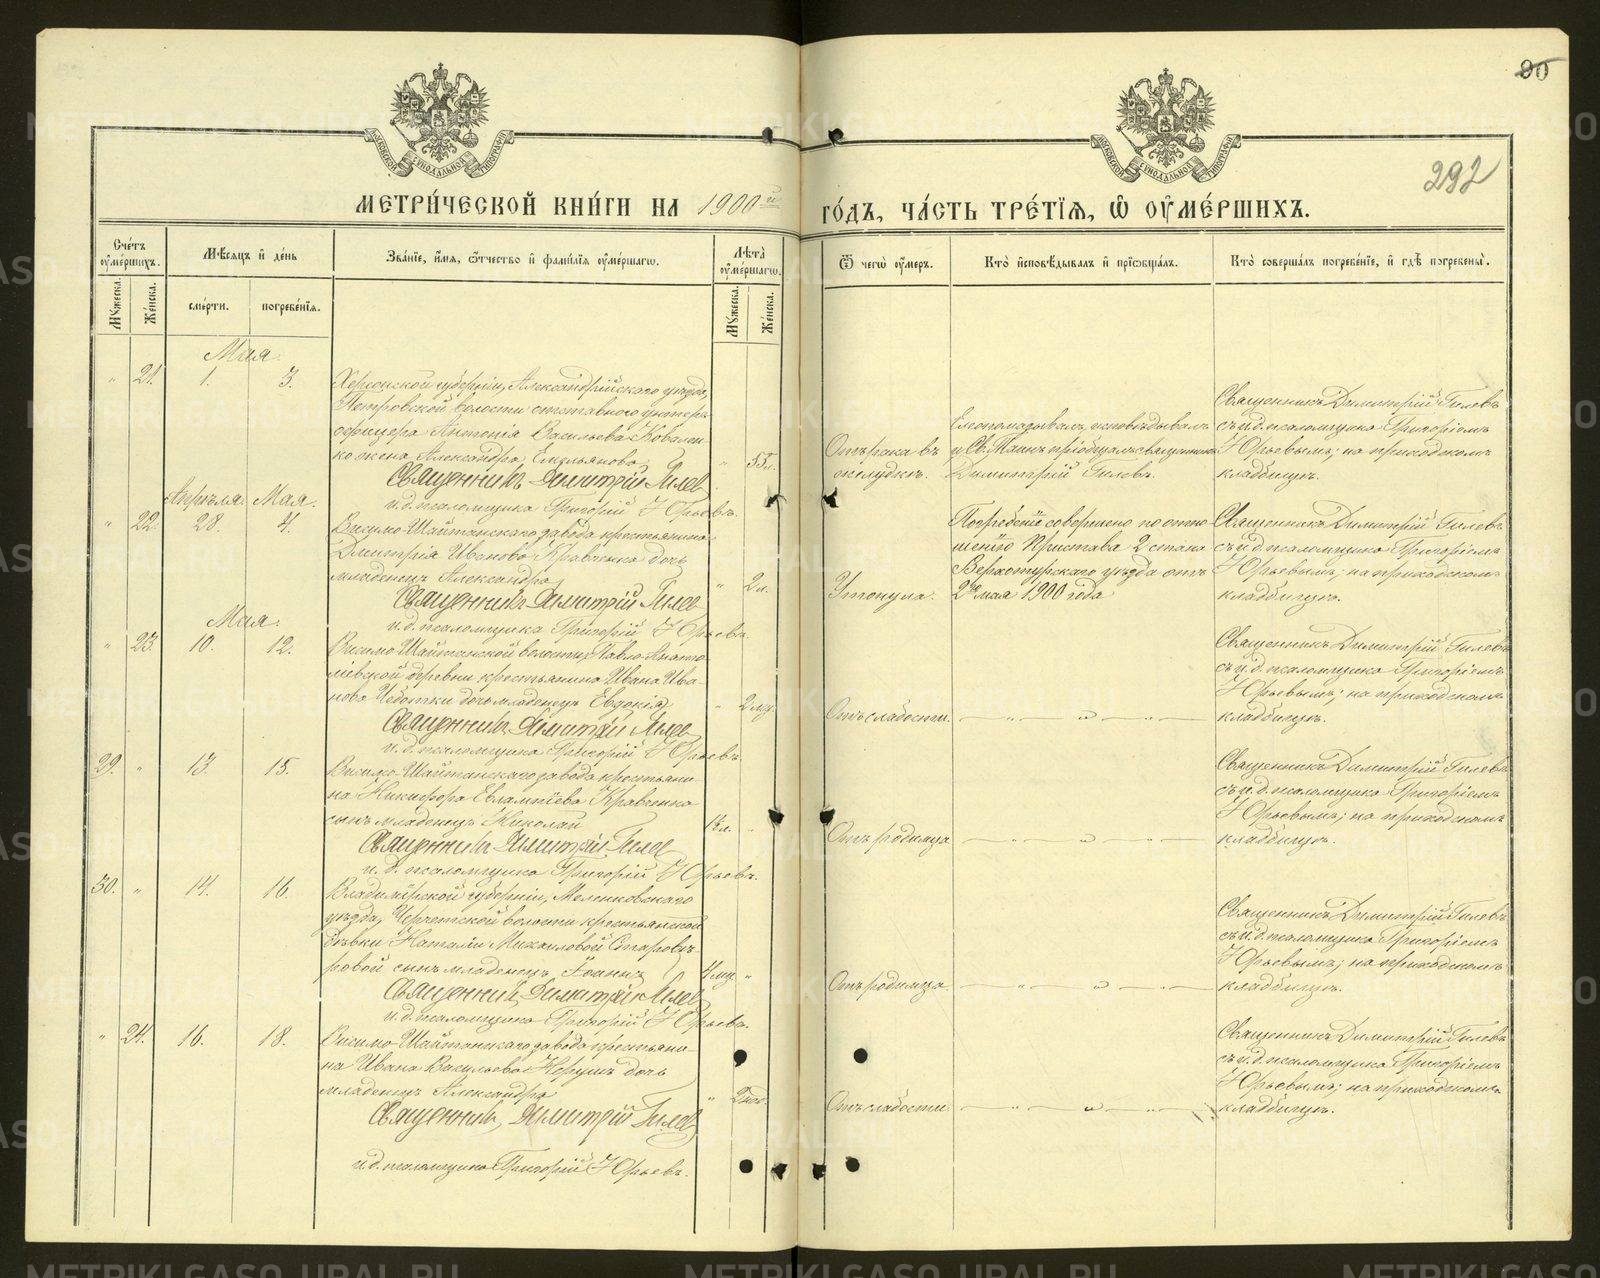 90
292
МОСКОВСКОЙ СѴНОДАЛЬНОЙ ТИПОГРАФІИ
МОСКОВСКОЙ СѴНОДАЛЬНОЙ ТИПОГРАФІИ
МЕТРИ́ЧЕСКОЙ КНИ́ГИ НА 1900й
ГО́ДЪ, ЧА́СТЬ ТРЕ́ТІѦ, Ѡ ОУ҆МЕ́РШИХЪ.
Сче́тъ оу҆ме́ршихъ.
Мѣ́сяцъ и҆ де́нь
Зва́ніе, и҆́мя, ѻ҆́тчество и҆ фами́лія оу҆ме́ршагѡ.
Лѣта̀ оу҆ме́ршагѡ.
Ѿ чегѡ̀ оу҆́меръ.
Кто̀ и҆сповѣ́дывалъ и҆ прїѡбща́лъ.
Кто̀ соверша́лъ погребе́нїе, и҆ гдѣ̀ погребены̀.
Мꙋ́жеска.
Же́нска.
сме́рти.
погребе́нїя.
Мꙋ́жеска.
Же́нска.
Мая.
" 21. 1. 3.
Херсонской губерніи, Александрійскаго уѣзда,
Петровской волости отставного унтеръ-
офицера Антонія Васильева Ковален-
ко жена Александра Емельянова
" 55 л.
Священникъ Димитрій Гилев
и.д. псаломщика Григорій Юрьевъ.
Отъ рака въ
желудкѣ.
Елеопомазывалъ, исповѣдывалъ
и Св. Таинъ пріобщалъ священникъ
Димитрій Гилевъ.
Священникъ Димитрій Гилевъ
съ и.д. псаломщика Григоріемъ
Юрьевымъ; на приходскомъ
кладбищѣ.
Апрѣля. Мая.
" 22. 28. 4.
Висимо-Шайтанскаго завода крестьянина
Дмитрія Иванова Кравченка дочь
младенецъ Александра
" 2 л.
Священникъ Димитрій Гилев
и.д. псаломщика Григорій Юрьевъ.
Утонула.
Погребеніе совершено по отно-
шенію Пристава 2 стана
Верхотурскаго уѣзда отъ
2го мая 1900 года
Священникъ Димитрій Гилевъ
съ и.д. псаломщика Григоріемъ
Юрьевымъ; на приходскомъ
кладбищѣ.
Мая.
" 23. 10. 12.
Висимо-Шайтанской волости, Павло-Анато-
ліевской деревни крестьянина Ивана Ива-
нова Чеботки дочь младенецъ Евдокія
" 2 мц.
Священникъ Димитрій Гилев
и.д. псаломщика Григорій Юрьевъ
Отъ слабости.
— " — " — " —
Священникъ Димитрій Гилевъ
съ и.д. псаломщика Григоріемъ
Юрьевымъ; на приходскомъ
кладбищѣ.
29. " 13. 15.
Висимо-Шайтанскаго завода крестьяни-
на Никифора Евлампіева Кравченко
сынъ младенецъ Николай
1½ л. "
Священникъ Димитрій Гилев
и.д. псаломщика Григорій Юрьевъ.
Отъ родимца
— " — " — " —
Священникъ Димитрій Гилевъ
съ и.д. псаломщика Григоріемъ
Юрьевымъ; на приходскомъ
кладбищѣ.
30. " 14. 16.
Владимірской губерніи, Меленковскаго
уѣзда, волости крестьянской
дѣвки Наталіи Михаиловой Старовѣ-
ровой сынъ младенецъ Іоаннъ
4 мц. "
Священникъ Димитрій Гилев
и.д. псаломщика Григорій Юрьевъ.
Отъ родимца.
— " — " — " —
Священникъ Димитрій Гилевъ
съ и.д. псаломщика Григоріемъ
Юрьевымъ; на приходскомъ
кладбищѣ.
" 24. 16. 18.
Висимо-Шайтанскаго завода крестьяни-
на Ивана Васильева дочь
младенецъ Александра
" 2 нед.
Священникъ Димитрій Гилев
и.д. псаломщика Григорій Юрьевъ.
Отъ слабости.
— " — " — " —
Священникъ Димитрій Гилевъ
съ и.д. псаломщика Григоріемъ
Юрьевымъ; на приходскомъ
кладбищѣ.
METRIKI.GASO-URAL.RU